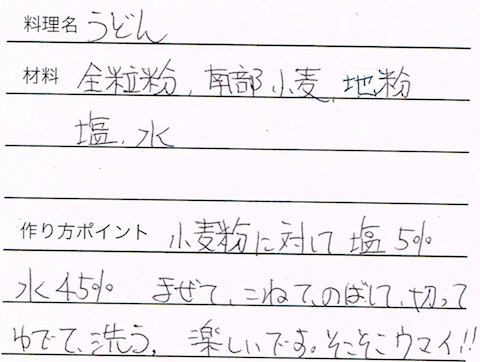 料理名 うどん
材料 全粒粉、南部小麦、地粉
塩、水
作り方ポイント 小麦粉に対して 塩5%
水45% まぜて、こねて、のばして、切って
ゆでて、洗う。 楽しいです。そこそこウマイ!!